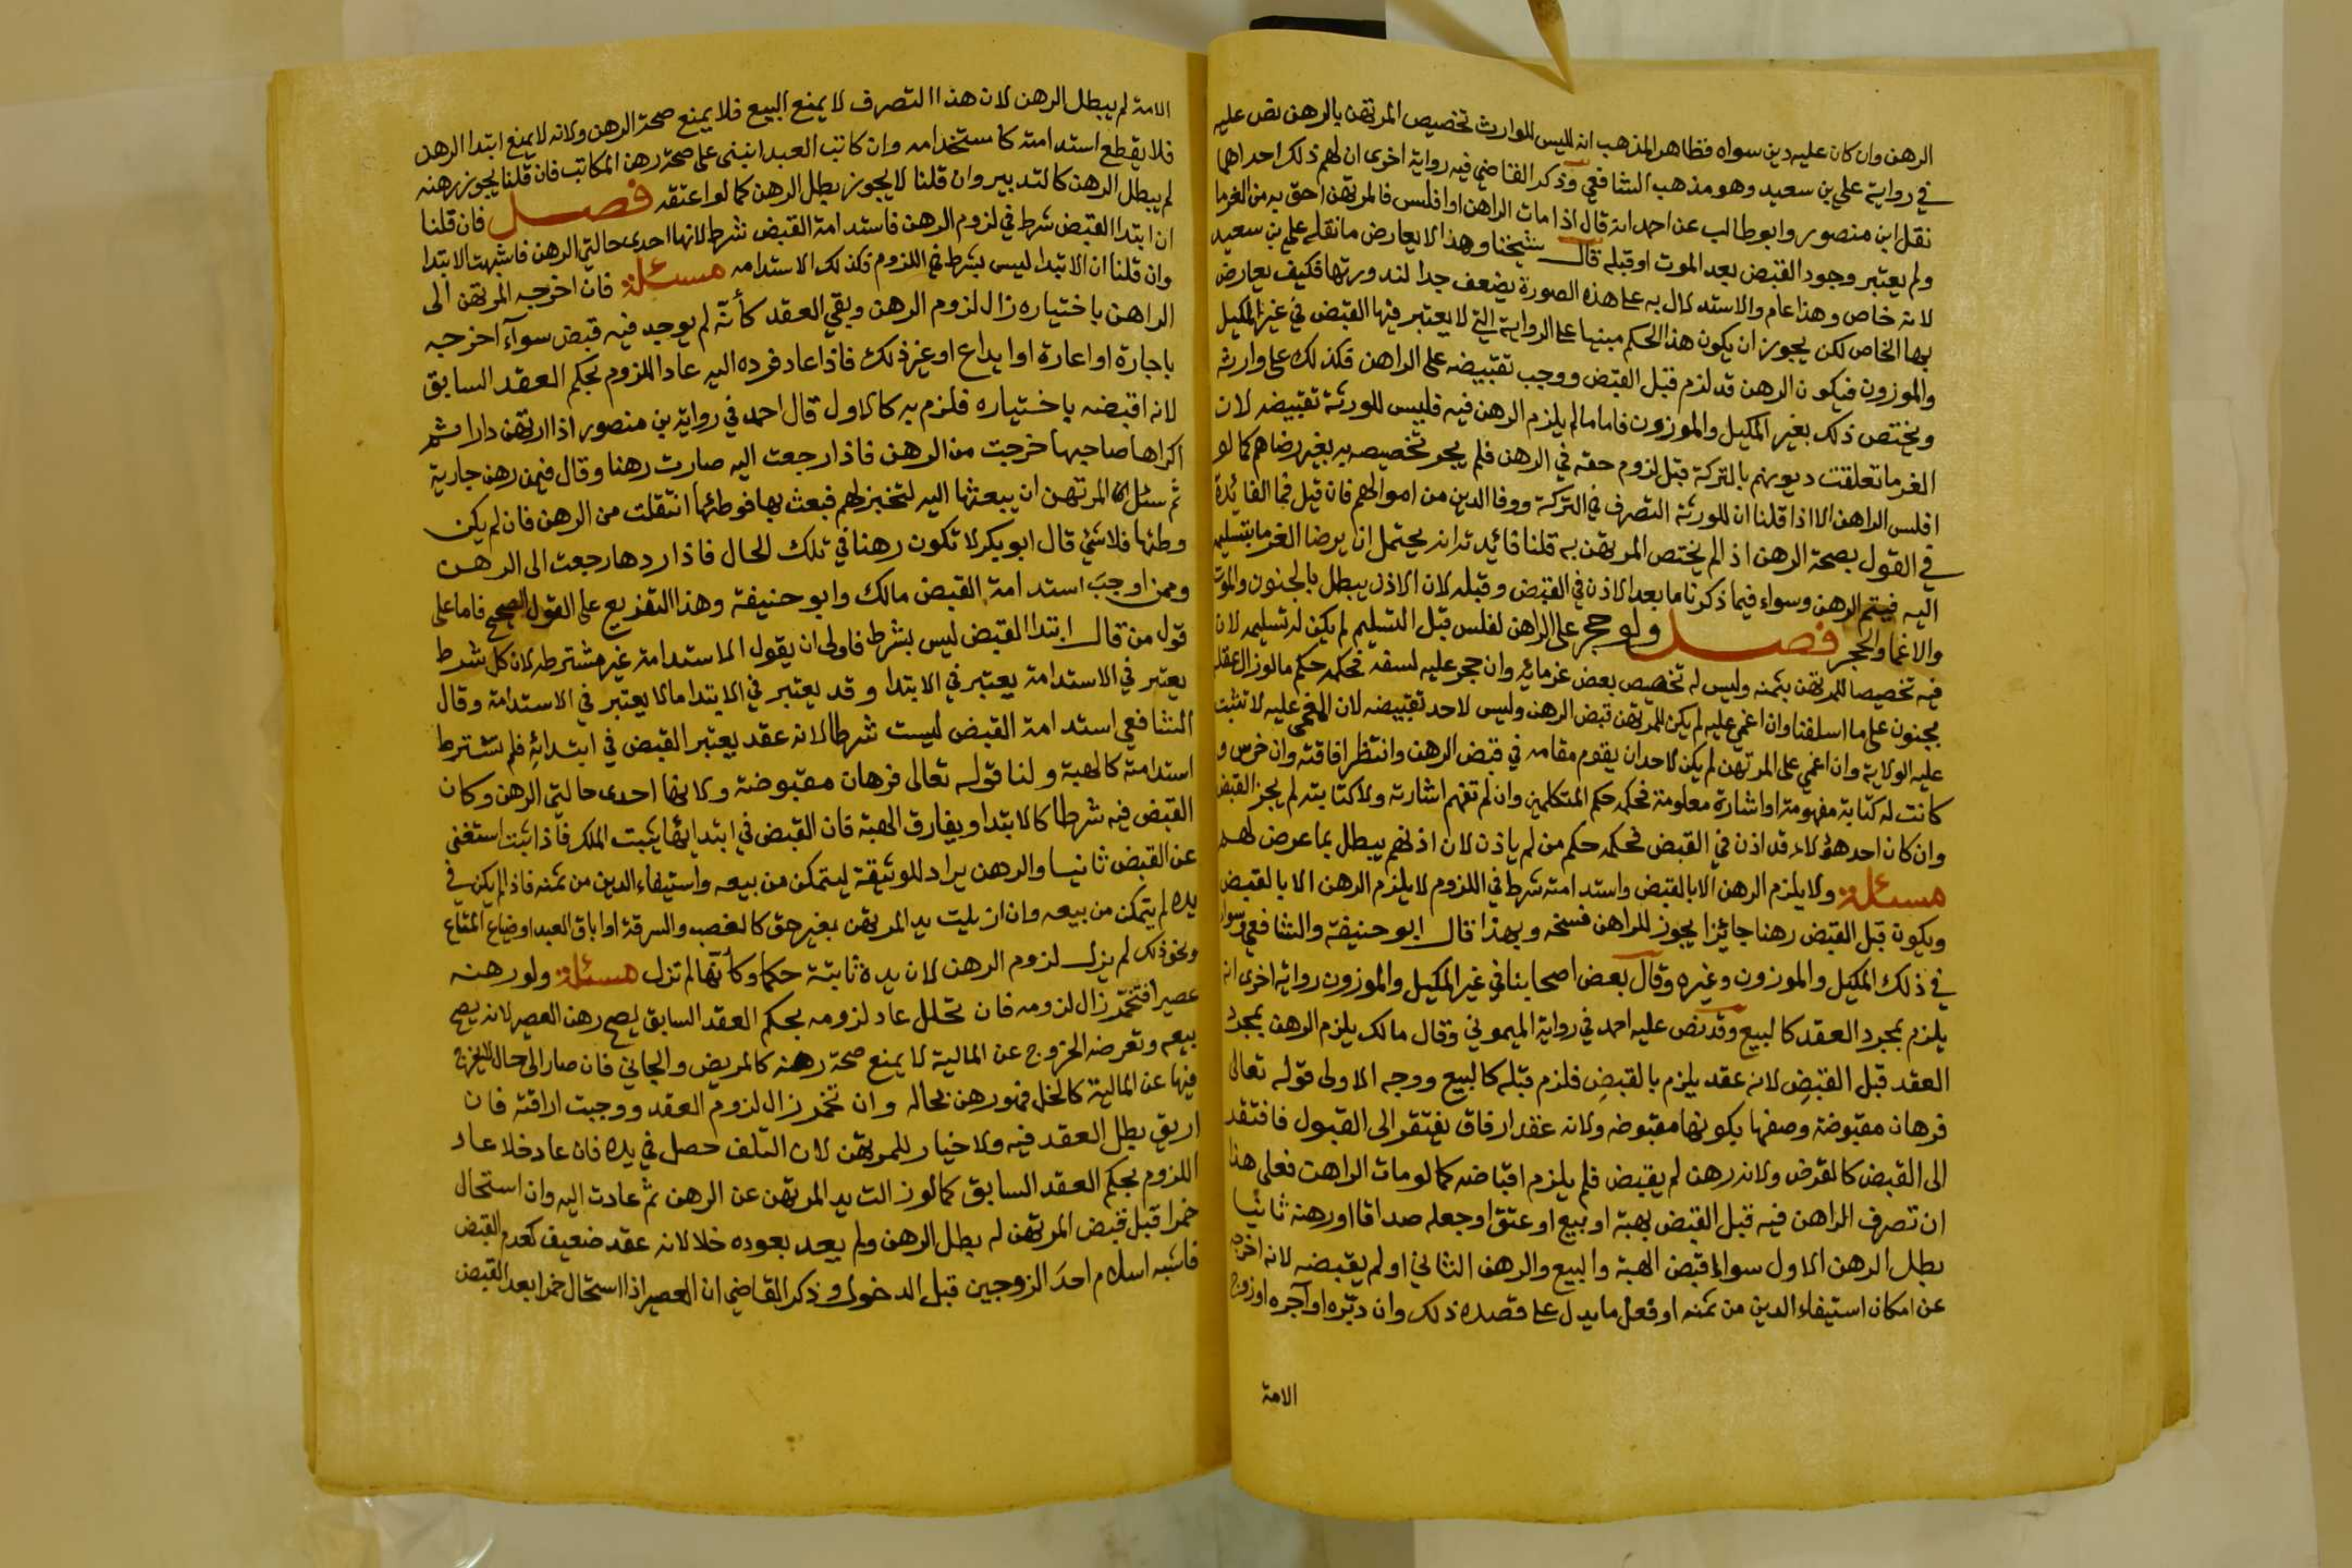 الرهن وان كان عليه دين سواه فظاهر المذهب انه لليس للوارث تخصيص المرتهن بالرهن نص عليه
في رواية علي بن سعيد وهو مذهب الشافعي وذكر القاضي فيه رواية اخرى ان لهم ذلك احداهما
نقل ابن منصور وابو طالب عن احمد انه قال اذا مات الراهن او افلس فالمرتهن احق به من الغرما
ولم يعتبر وجود القبض بعد الموت او قبله قال شيخنا وهذا لا يعارض ما نقله علي بن سعيد
لانه خاص وهذا عام والاستدلال به على هذه الصورة يضعف جدا لندورتها فكيف يعارض
بها الخاص لكن يجوز ان يكون هذا الحكم مبنيا على الرواية التي لا يعتبر فيها القبض في غير المكيل
والموزون فيكون الرهن قد لزم قبل القبض ووجب تقبيضه على الراهن فكذلك على وارثه
ويختص ذلك بغير المكيل والموزون فاما ما لم يلزم الرهن فيه فليس للورثة تقبيضه لان
الغرما تعلقت ديونهم بالتركة قبل لزوم حقه في الرهن فلم يجز تخصيصه به بغير رضاهم كما لو
افلس الراهن الا اذا قلنا ان للورثة التصرف في التركة ووفا الدين من اموالهم فان قيل فما الفائدة
في القول بصحة الرهن اذ لم يختص المرتهن به قلنا فائدته انه يحتمل ان يرضا الغرما بتسليمه
اليه فيتم الرهن وسواء فيما ذكرنا ما بعد الاذن في القبض وقبله لان الاذن يبطل بالجنون والموت
والاغما والحجر فصل ولو حجر على الراهن لفلس قبل التسليم لم يكن له تسليمه لان
فيه تخصيصا للمرتهن بثمنه وليس له تخصيص بعض غرمائه وان حجر عليه لسفه فحكمه حكم ما لو زال عقله
بجنون على ما اسلفنا وان اغمي عليه لم يكن للمرتهن قبض الرهن وليس لاحد تقبيضه لان المغمى عليه لا تثبت
عليه الولاية وان اغمي على المرتهن لم يكن لاحد ان يقوم مقامه في قبض الرهن وانتظر افاقته وان خرس و
كانت له كتابة مفهومة او اشارة معلومة فحكمه حكم المتكلمين وان لم تفهم اشارته ولا كتابته لم يجز القبض
وان كان احد هؤلاء قد اذن في القبض فحكمه حكم من لم ياذن لان اذنهم يبطل بما عرض لهم
مسئلة ولا يلزم الرهن الا بالقبض واستدامته شرط في اللزوم لا يلزم الرهن الا بالقبض
ويكون قبل القبض رهنا جائزا يجوز للراهن فسخه وبهذا قال ابو حنيفة والشافعي وسواء
في ذلك المكيل والموزون وغيره وقال بعض اصحابنا في غير المكيل والموزون رواية اخرى انه
يلزم بمجرد العقد كالبيع وقد نص عليه احمد في رواية الميموني وقال مالك يلزم الرهن بمجرد
العقد قبل القبض لانه عقد يلزم بالقبض فلزم قبله كالبيع ووجه الاولى قوله تعالى
فرهان مقبوضة وصفها بكونها مقبوضة ولانه عقد ارفاق يفتقر الى القبول فافتقد
الى القبض كالقرض ولانه رهن لم يقبض فلم يلزم اقباضه كما لو مات الراهن فعلى هذا
ان تصرف الراهن فيه قبل القبض بهبة او بيع او عتق او جعله صداقا او رهنه ثانيا
بطل الرهن الاول سواء قبض الهبة والبيع والرهن الثاني او لم يقبضه لانه اخرجه
عن امكان استيفاء الدين من ثمنه او فعل ما يدل على قصده ذلك وان دبّره او آجره او زوج
الامة
الامة لم يبطل الرهن لان هذا التصرف لا يمنع البيع فلا يمنع صحة الرهن ولانه لا يمنع ابتدا الرهن
فلا يقطع استدامته كاستخدامه وان كاتب العبد انبنى على صحة رهن المكاتب فان قلنا يجوز رهنه
لم يبطل الرهن كالتدبير وان قلنا لا يجوز بطل الرهن كما لو اعتقه فصل فان قلنا
ان ابتدا القبض شرط في لزوم الرهن فاستدامة القبض شرط لانها احدى حالتي الرهن فاشبهت الابتدا
وان قلنا ان الابتدا ليس بشرط في اللزوم فكذلك الاستدامه مسئلة فان اخرجه المرتهن الى
الراهن باختياره زال لزوم الرهن وبقي العقد كأنه لم يوجد فيه قبض سوآء اخرجه
باجارة او اعارة او ايداع او غير ذلك فاذا عاد فرده اليه عاد اللزوم بحكم العقد السابق
لانه اقبضه باختياره فلزم به كالاول قال احمد في رواية بن منصور اذا ارتهن دارا ثم
اكراها صاحبها خرجت من الرهن فاذا رجعت اليه صارت رهنا وقال فيمن رهن جارية
ثم سئل المرتهن ان يبعثها اليه لتخبز لهم فبعث بها فوطئها انتقلت من الرهن فان لم يكن
وطئها فلا شئ قال ابو بكر لا تكون رهنا في تلك الحال فاذا ردها رجعت الى الرهن
وممن اوجب استدامة القبض مالك وابو حنيفة وهذا التفريع على القول الصحيح فاما على
قول من قال ابتدا القبض ليس بشرط فاولى ان يقول الاستدامة غير مشترطه لان كل شرط
يعتبر في الاستدامة يعتبر في الابتدا وقد يعتبر في الابتدا ما لا يعتبر في الاستدامة وقال
الشافعي استدامة القبض ليست شرطا لانه عقد يعتبر القبض في ابتدائه فلم تشترط
استدامته كالهبة ولنا قوله تعالى فرهان مقبوضة ولانها احدى حالتي الرهن وكان
القبض فيه شرطا كالابتدا ويفارق الهبة فان القبض في ابتدائها يثبت الملك فاذا ثبت استغنى
عن القبض ثانيا والرهن يراد للوثيقة ليتمكن من بيعه واستيفاء الدين من ثمنه فاذا لم يكن في
يده لم يتمكن من بيعه وان ازيلت يد المرتهن بغير حق كالغصب والسرقة او اباق العبد او ضياع المتاع
ونحو ذلك لم يزل لزوم الرهن لان يده ثابتة حكما وكأنها لم تزل مسئلة ولو رهنه
عصيرا فتخمّر زال لزومه فان تخلل عاد لزومه بحكم العقد السابق يصح رهن العصير لانه يصح
بيعه وتعرضه الخروج عن المالية لا يمنع صحة رهنه كالمريض والجاني فان صار الى حال لا يخرج
فيها عن المالية كالخل فهو رهن بحاله وان تخمر زال لزوم العقد ووجبت اراقته فان
اريق بطل العقد فيه ولا خيار للمرتهن لان التلف حصل في يده فان عاد خلا عاد
اللزوم بحكم العقد السابق كما لو زالت يد المرتهن عن الرهن ثم عادت اليه وان استحال
خمرا قبل قبض المرتهن له بطل الرهن ولم يعد بعوده خلا لانه عقد ضعيف كعدم القبض
فاشبه اسلام احد الزوجين قبل الدخول وذكر القاضي ان العصير اذا استحال خمرا بعد القبض